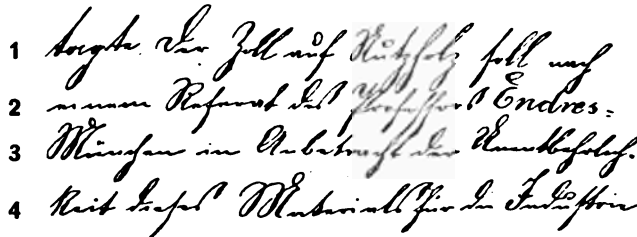 1 tagte. Der Zoll auf Nutzholz soll nach
2 einem Referat des Professors Endres-
3 München in Anbetracht der Unentbehrlich-
4 keit dieses Materials für die Industrie